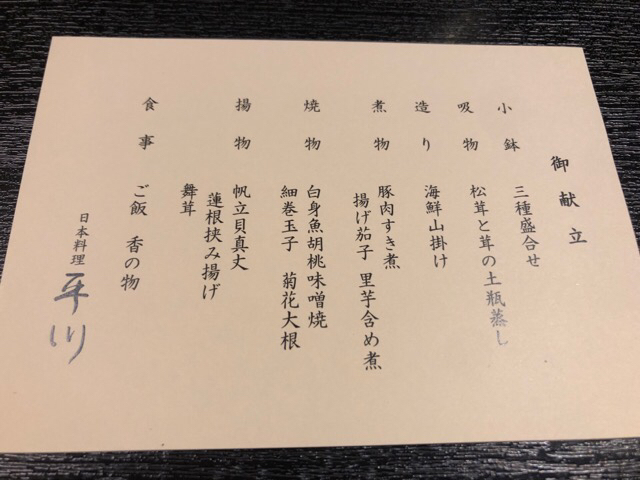 御献立
小鉢 三種盛合せ
吸物 松茸と茸の土瓶蒸し
造り 海鮮山掛け
煮物 豚肉すき煮
揚げ茄子 里芋含め煮
焼物 白身魚胡桃味噌焼
細巻玉子 菊花大根
揚物 帆立貝真丈
蓮根挟み揚げ
舞茸
食事 ご飯 香の物
日本料理 平川